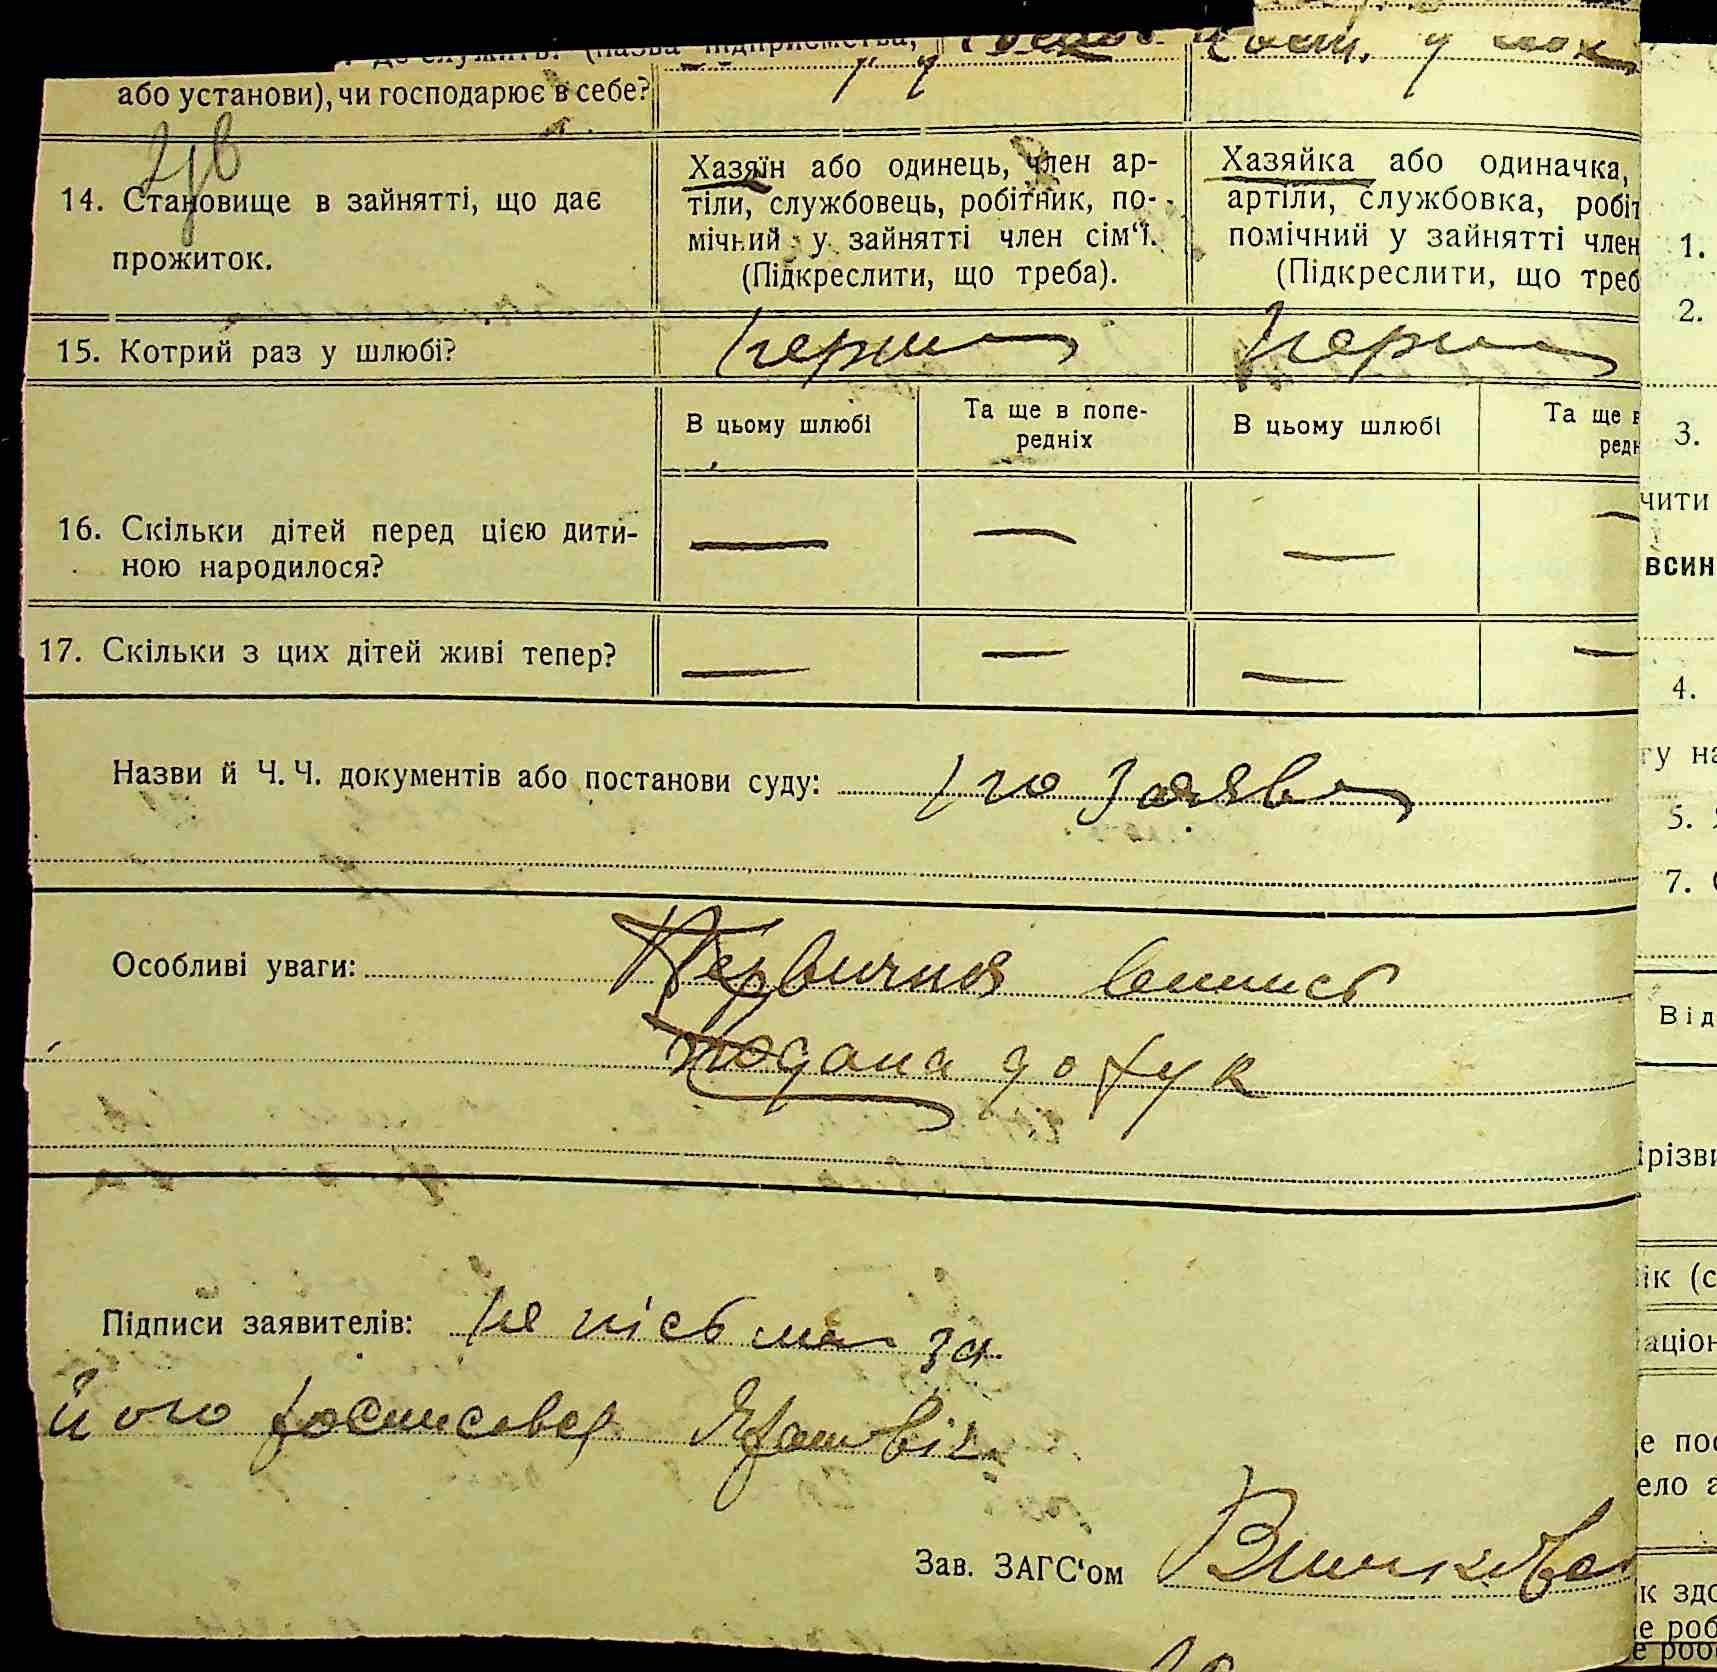 де служить? (назва підприємства,
або установи), чи господарює в себе?
14. Становище в зайнятті, що дає
прожиток.
Хазяїн або одинець, член ар-
тіли, службовець, робітник, по-
мічний у зайнятті член сім'ї.
(Підкреслити, що треба).
Хазяйка або одиначка,
артіли, службовка, робіт
помічний у зайнятті член
(Підкреслити, що треб
15. Котрий раз у шлюбі?
перши
перши
В цьому шлюбі
Та ще в попе-
редніх
В цьому шлюбі
Та ще в
редн
16. Скільки дітей перед цією дити-
ною народилося?
— — — —
17. Скільки з цих дітей живі тепер?
— — — —
Назви й Ч. Ч. документів або постанови суду: по заяві
Особливі уваги: Первична
подана до
Підписи заявителів: не пісьма за
його
Зав. ЗАГС'ом
1.
2.
3.
чити
всин
4.
гу на
5.
7.
Від
різви
ік (с
аціон
е пос
ело а
к здо
е роб
е роб